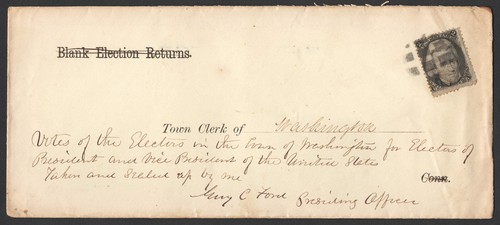 Blank Election Returns.
Town Clerk of Washington
Votes of the Electors in the Town of Washington for Electors of
President and Vice President of the United State
Taken and Sealed up by me
Conn.
Guy C Ford Presiding Officer